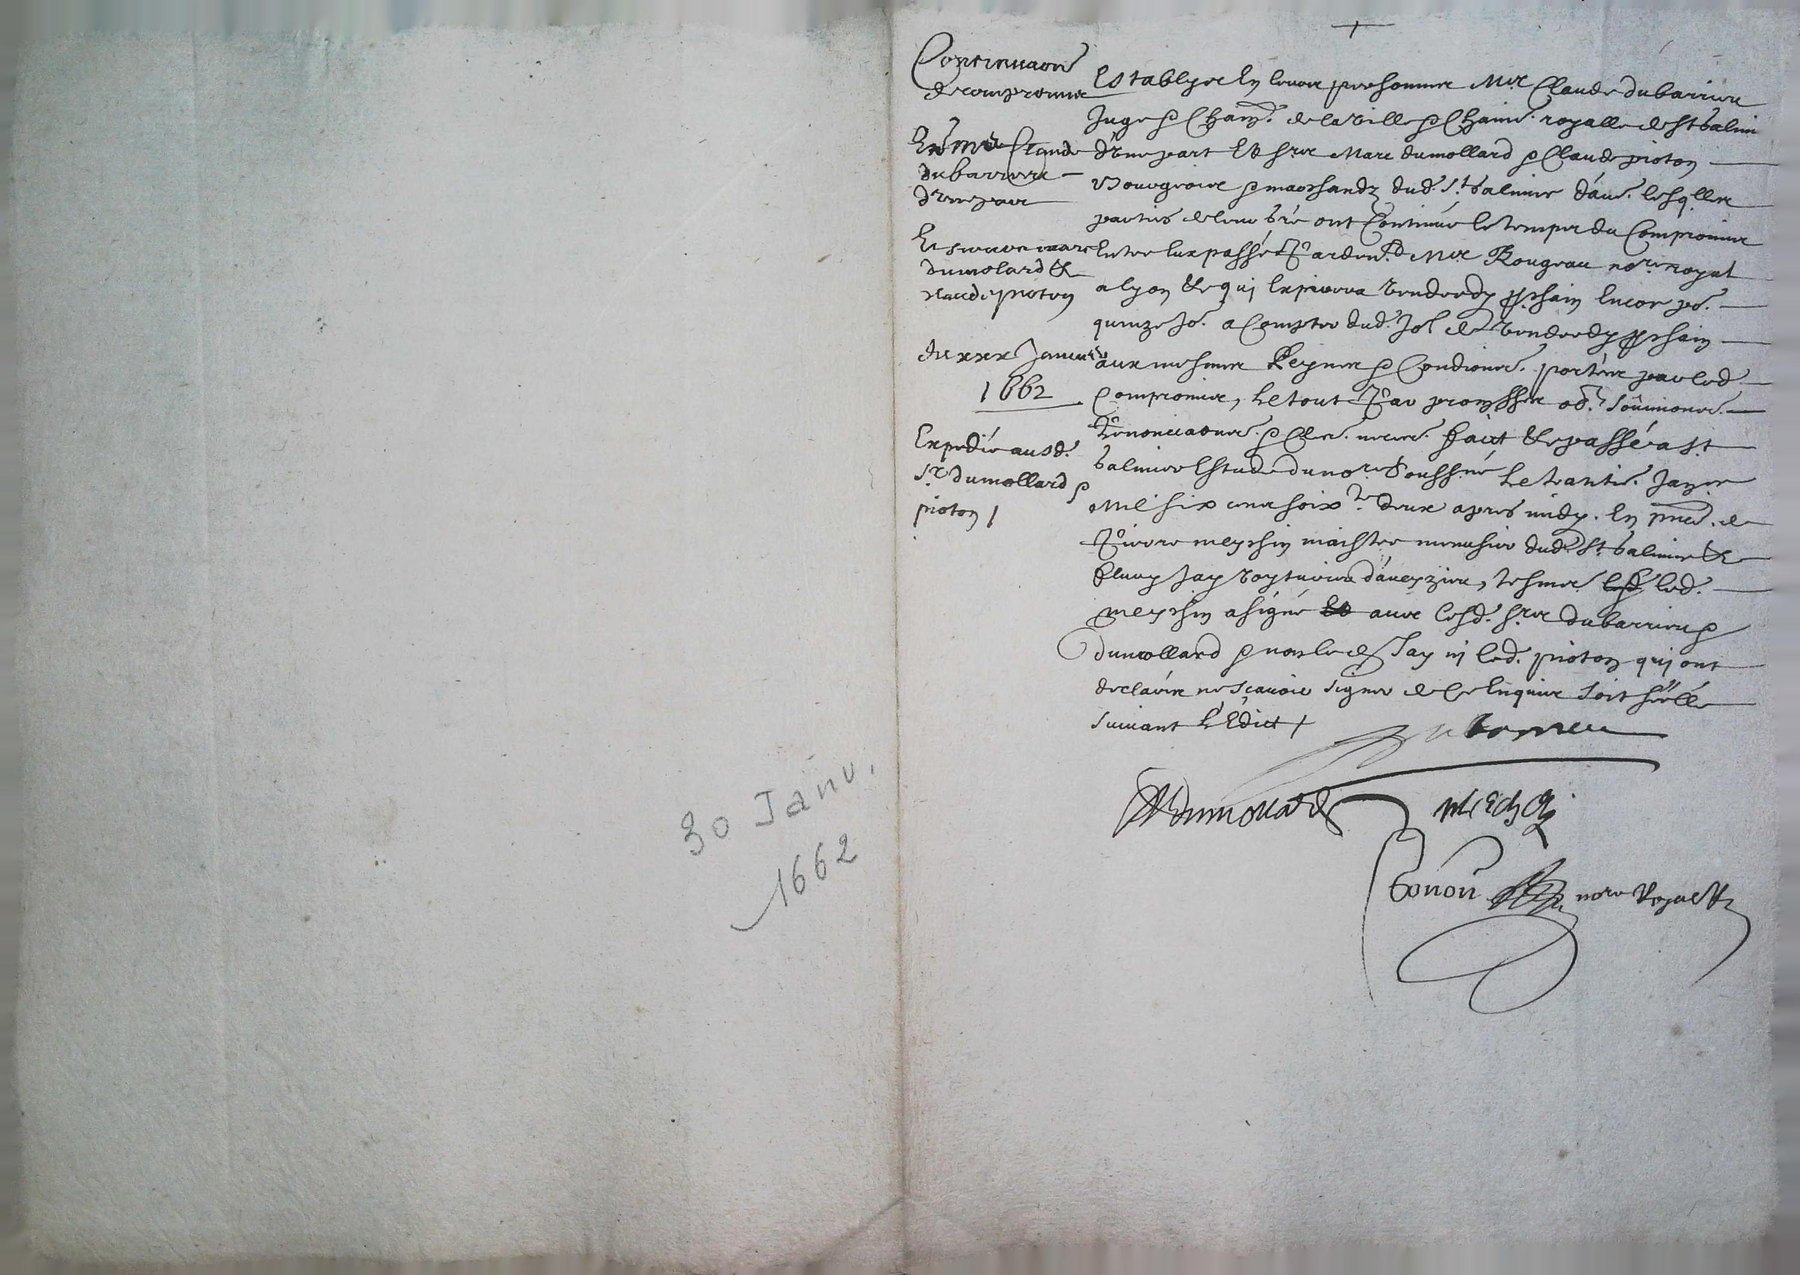 30 Janv.
1662
Continuaõn
de compromis
Entre Mre Claude
dubarrieu
d'une part
Et sieurs marc
dumolard &
claude pioton
du xxx Janvier
1662
Expedié ausd.
Srs dumollard &
pioton /
Establys En leurs personnes Mre Claude dubarrieu
Juge & Chastn. de la ville & Chastnie. royalle de St galmier
d'une part Et srs Marc dumollard & Claude pioton
Bourgeois & marchandz dud. St galmier d'autre. lesqlles
parties de leur gré ont Continué le temps du Compromis
Entre Eux passé Pardevt. Mre Rougeau nore royal
a lyon & qui Expirera Vendredy prochain Encor pr.
quinze Jrs. a Compter dud. Jol de Vendredy prochain
aux mesmes Peynes & Conditions. portées par led.
Compromis, Le tout Par promesses obons. soumissions.
Renonciations. & Clses. necess. faict & passé a St
galmier Estude du nore soussné Le trantie. Janr
Mil six cens soixte. deux apres midy. En pnce. de
Pierre meyssin maistre menusier dud. St galmier &
fleury Jay voyturier d'aveyzieu, tesmoins. led.
meyssin a signé avec lesd. srs dubarrieu &
dumollard & non led. Jay ny led. pioton qui ont
declairé ne sçavoir signer de Ce Enquis soit séellé
suivant L'Edict /
Dubarrieu
Mdumollard
meschi
nore Royal